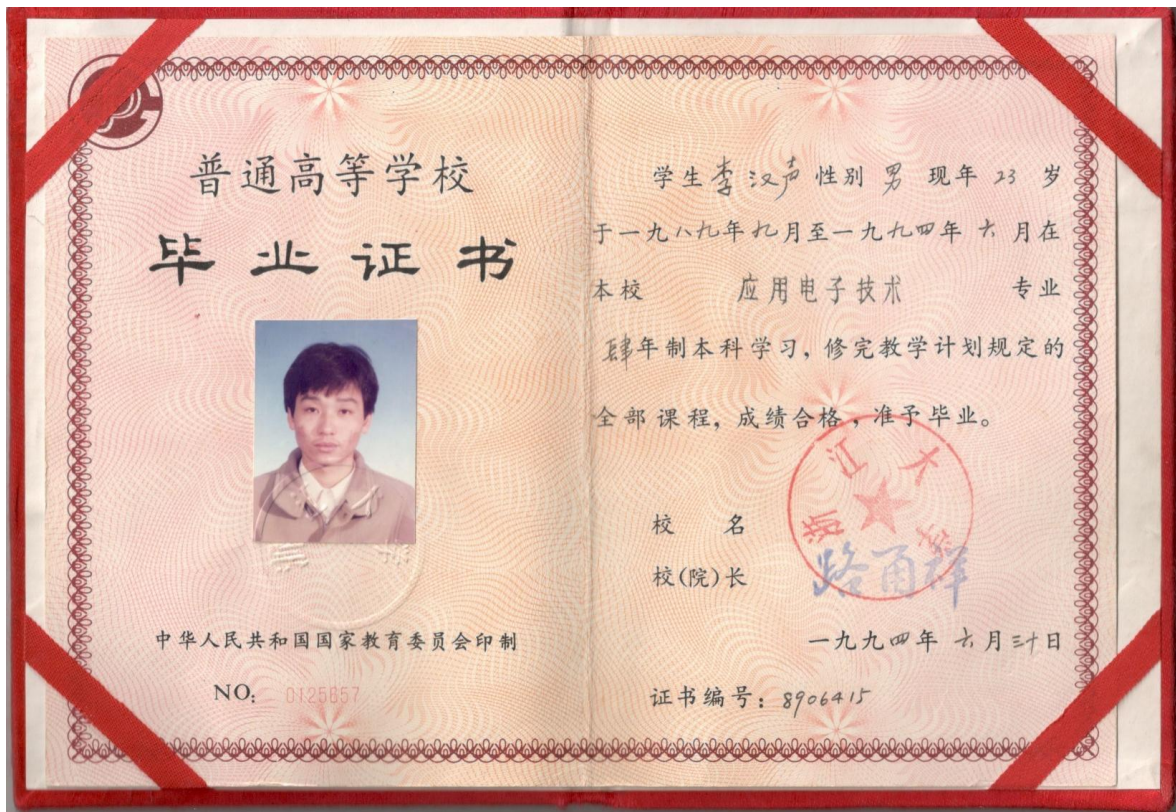 普通高等学校
毕业证书
中华人民共和国国家教育委员会印制
NO: 0125857
学生李汉声性别 男 现年 23 岁
于一九八九年九月至一九九四年 六 月在
本校 应用电子技术 专业
肆年制本科学习，修完教学计划规定的
全部课程，成绩合格，准予毕业。
浙江大学
校 名
校(院)长 路甬祥
一九九四年 六月三十日
证书编号：8906415